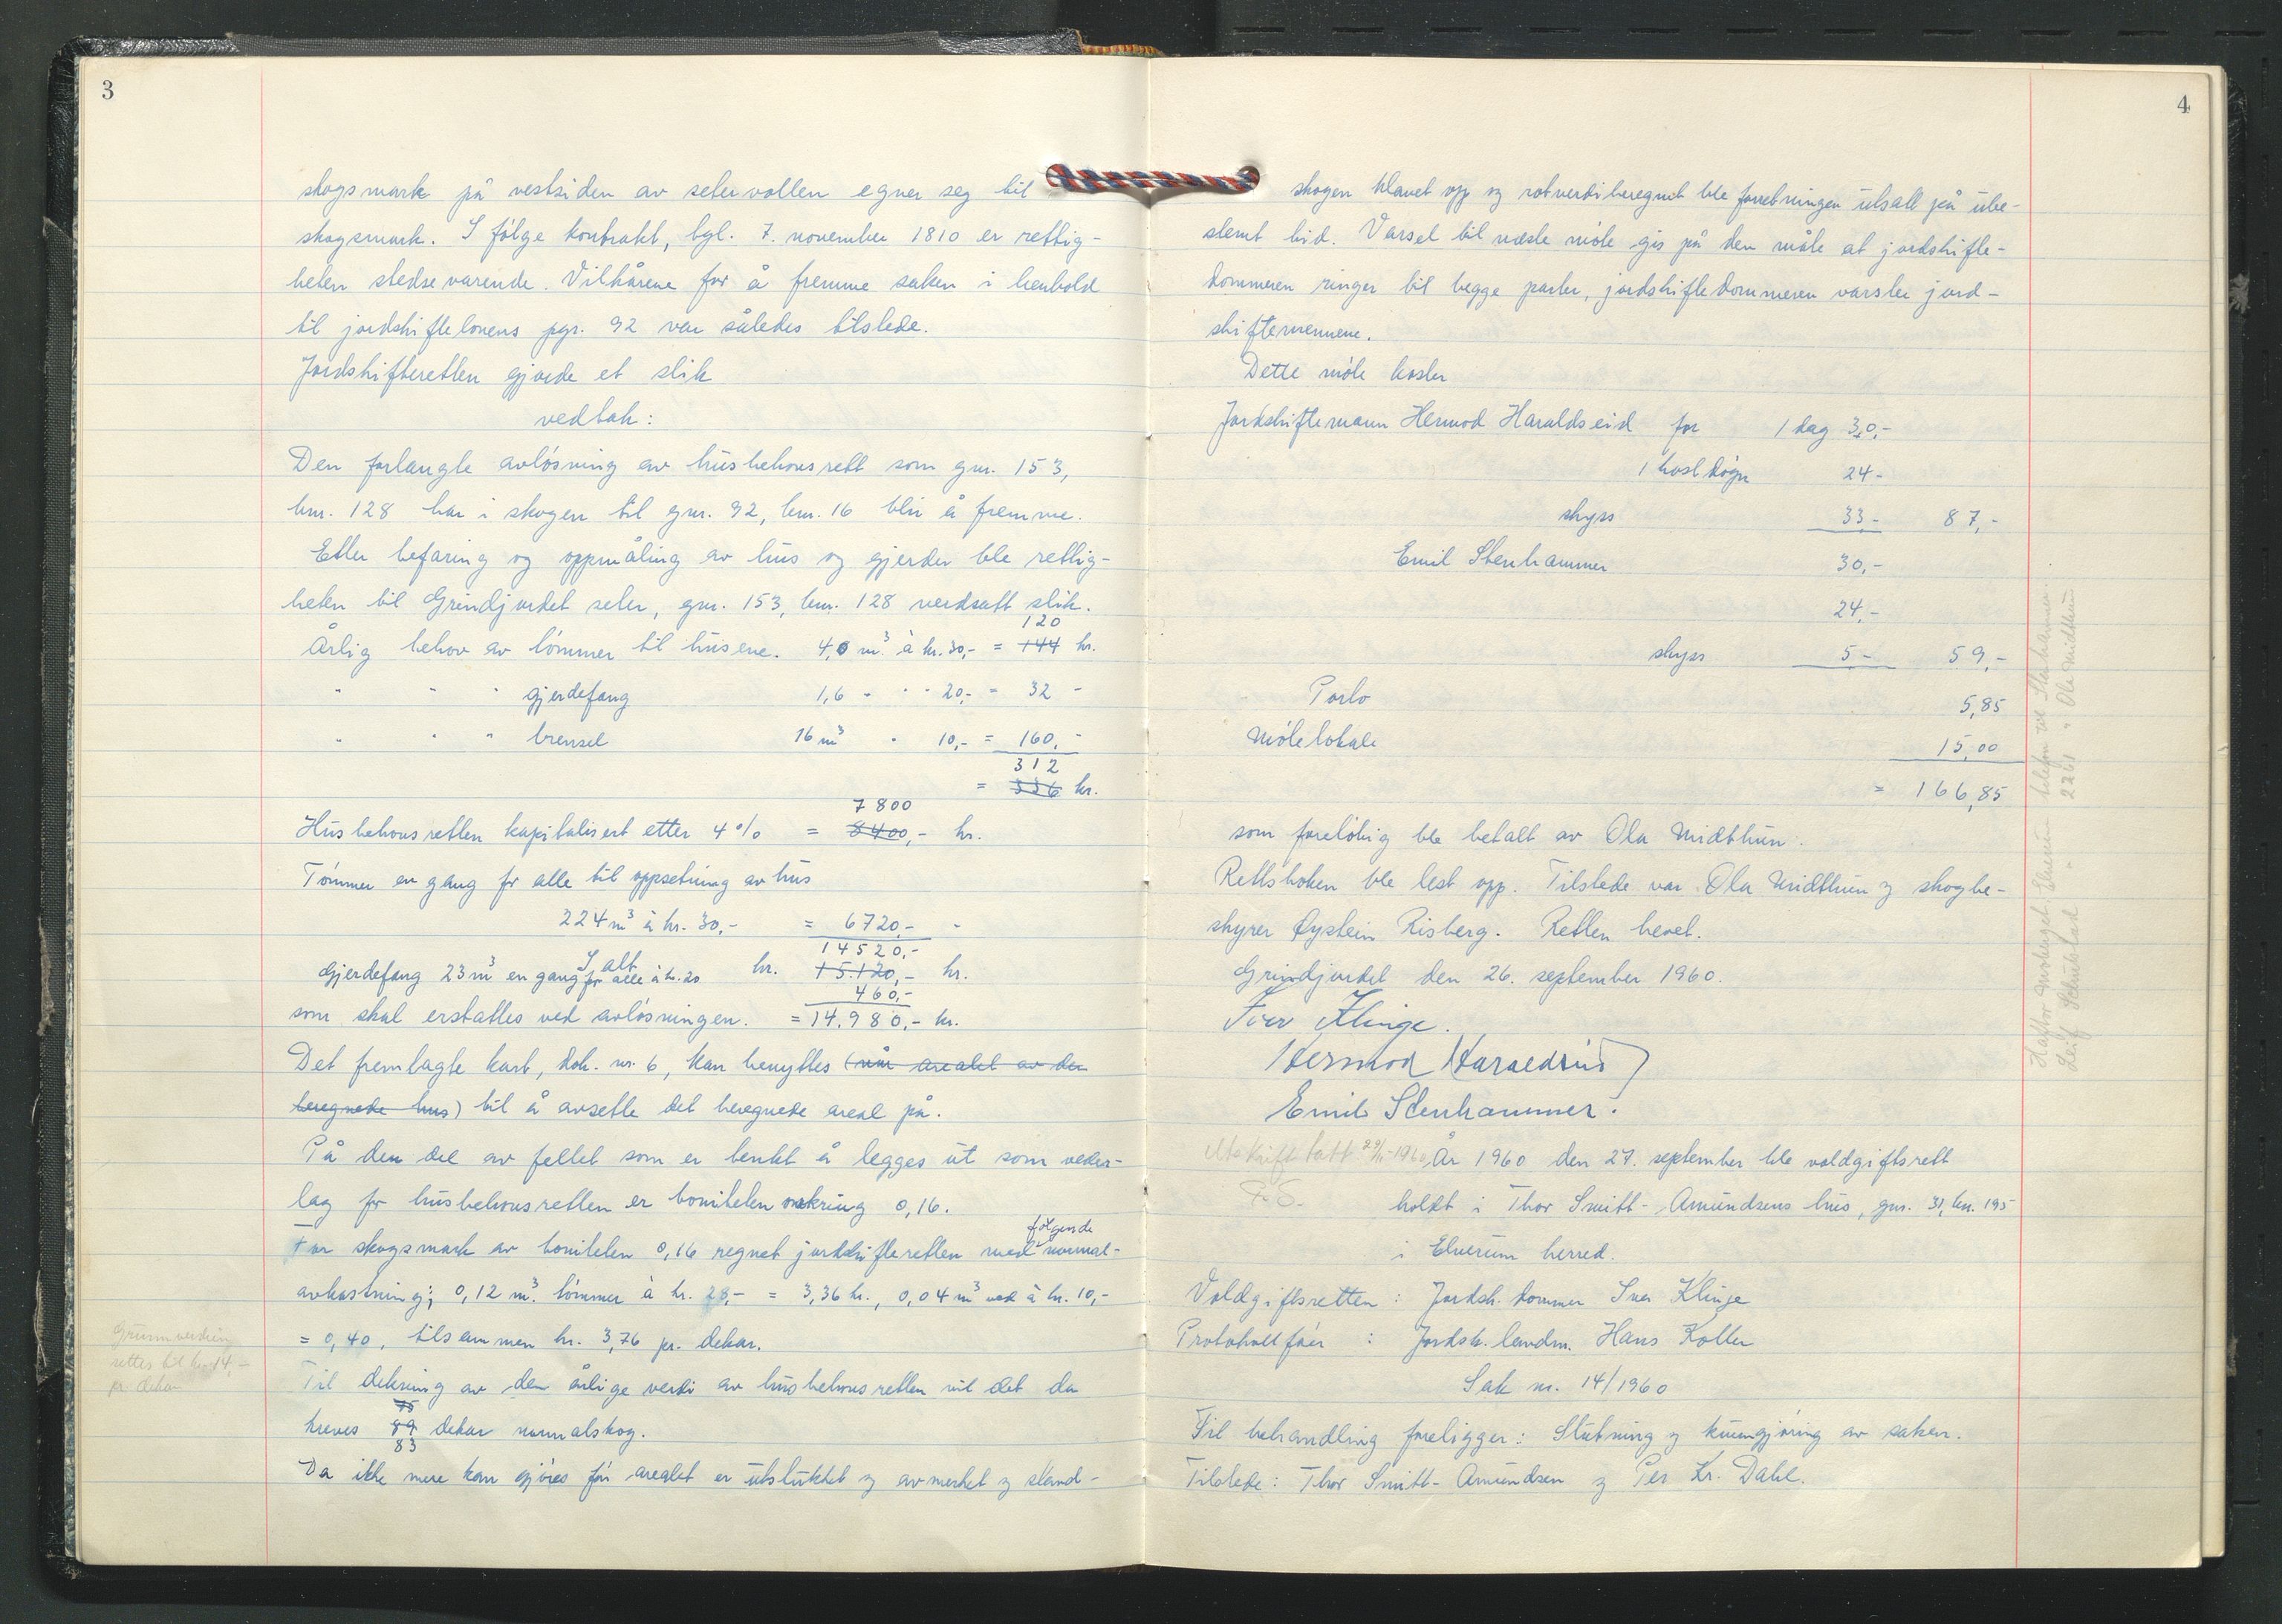 3
skogsmark på vestsiden av setervollen egner seg til
skogsmark. I følge kontrakt, tgl. 7. november 1810 er rettig-
heten stedsevarende. Vilkårene for å fremme saken i henhold
til jordskiftelovens pgr. 92 var således tilstede.
Jordskifteretten gjorde et slik
vedtak:
Den forlangte avløsning av husbehovsrett som gnr. 153,
bnr. 128 har i skogen til gnr. 92, bnr. 16 blir å fremme.
Etter befaring og oppmåling av hus og gjerder ble rettig-
heten til Grindjordet seter, gnr. 153, bnr. 128 verdsatt slik.
120
Årlig behov av tømmer til husene. 4,0 m³ à kr. 30,- = 144 kr.
" " " gjerdefang 1,6 " " " 20,- = 32 -
" " " brensel 16 m³ " 10,- = 160,-
312
= 336 kr.
7800
Husbehovsretten kapitalisert etter 4% = 8400,- kr.
Tømmer en gang for alle til oppsetning av hus
224 m³ à kr. 30,- = 6720,- -
14520,-
I alt kr. 15.120,- kr.
Gjerdefang 23 m³ en gang for alle à kr. 20 460,-
som skal erstattes ved avløsningen. = 14.980,- kr.
Det fremlagte kart, dok. nr. 6, kan benyttes (når arealet av de
beregnede hus) til å avsette det beregnede areal på.
På den del av feltet som er tenkt å legges ut som veder-
lag for husbehovsretten er boniteten omkring 0,16.
følgende
For skogsmark av boniteten 0,16 regnet jordskifteretten med normal-
avkastning: 0,12 m³. tømmer à kr. 28,- = 3,36 kr., 0,04 m³ ved à kr. 10,-
= 0,40, tilsammen kr. 3,76 pr. dekar.
Grunnverdien
rettes til kr. 14,-
pr. dekar
Til dekning av den årlige verdi av husbehovsretten vil det da
75
kreves 89 dekar normalskog.
83
Da ikke mere kan gjøres før arealet er utstukket og avmerket og stand-
4
skogen klavet opp og rotverdiberegnet ble forretningen utsatt på ube-
stemt tid. Varsel til neste møte gis på den måte at jordskifte-
dommeren ringer til begge parter, jordskiftedommeren varsler jord-
skiftemennene.
Dette møte koster
Jordskiftemann Hermod Haraldseid for 1 dag 30,-
1 kostdøgn 24-
skyss 33,- 87,-
Emil Stenhammer 30,-
24,-
skyss 5- 59,-
Porto 5,85
Møtelokale 15,00
= 166,85
som foreløbig ble betalt av Ola Midthun.
Rettsboken ble lest opp. Tilstede var Ola Midthun og skogbe-
styrer Øystein Risberg. Retten hevet.
Grindjordet den 26. september 1960.
Iver Klinge.
Hermod Haraldseid
Emil Stenhammer.
Utskrift tatt 29/11-1960
År 1960 den 27. september ble voldgiftsrett
holdt i Thor Smitt-Amundsens hus, gnr. 31, bnr. 195
i Elverum herred.
Voldgiftsretten: Jordsk. dommer Iver Klinge
Protokollfører: Jordsk. landm. Hans Koller
Sak nr. 14/1960
Til behandling foreligger: Slutning og kunngjøring av saken.
Tilstede: Thor Smitt-Amundsen og Per Kr. Dahl.
Elverum telefon ved Stenhammer.
Leif 2261 " Ola Midthun